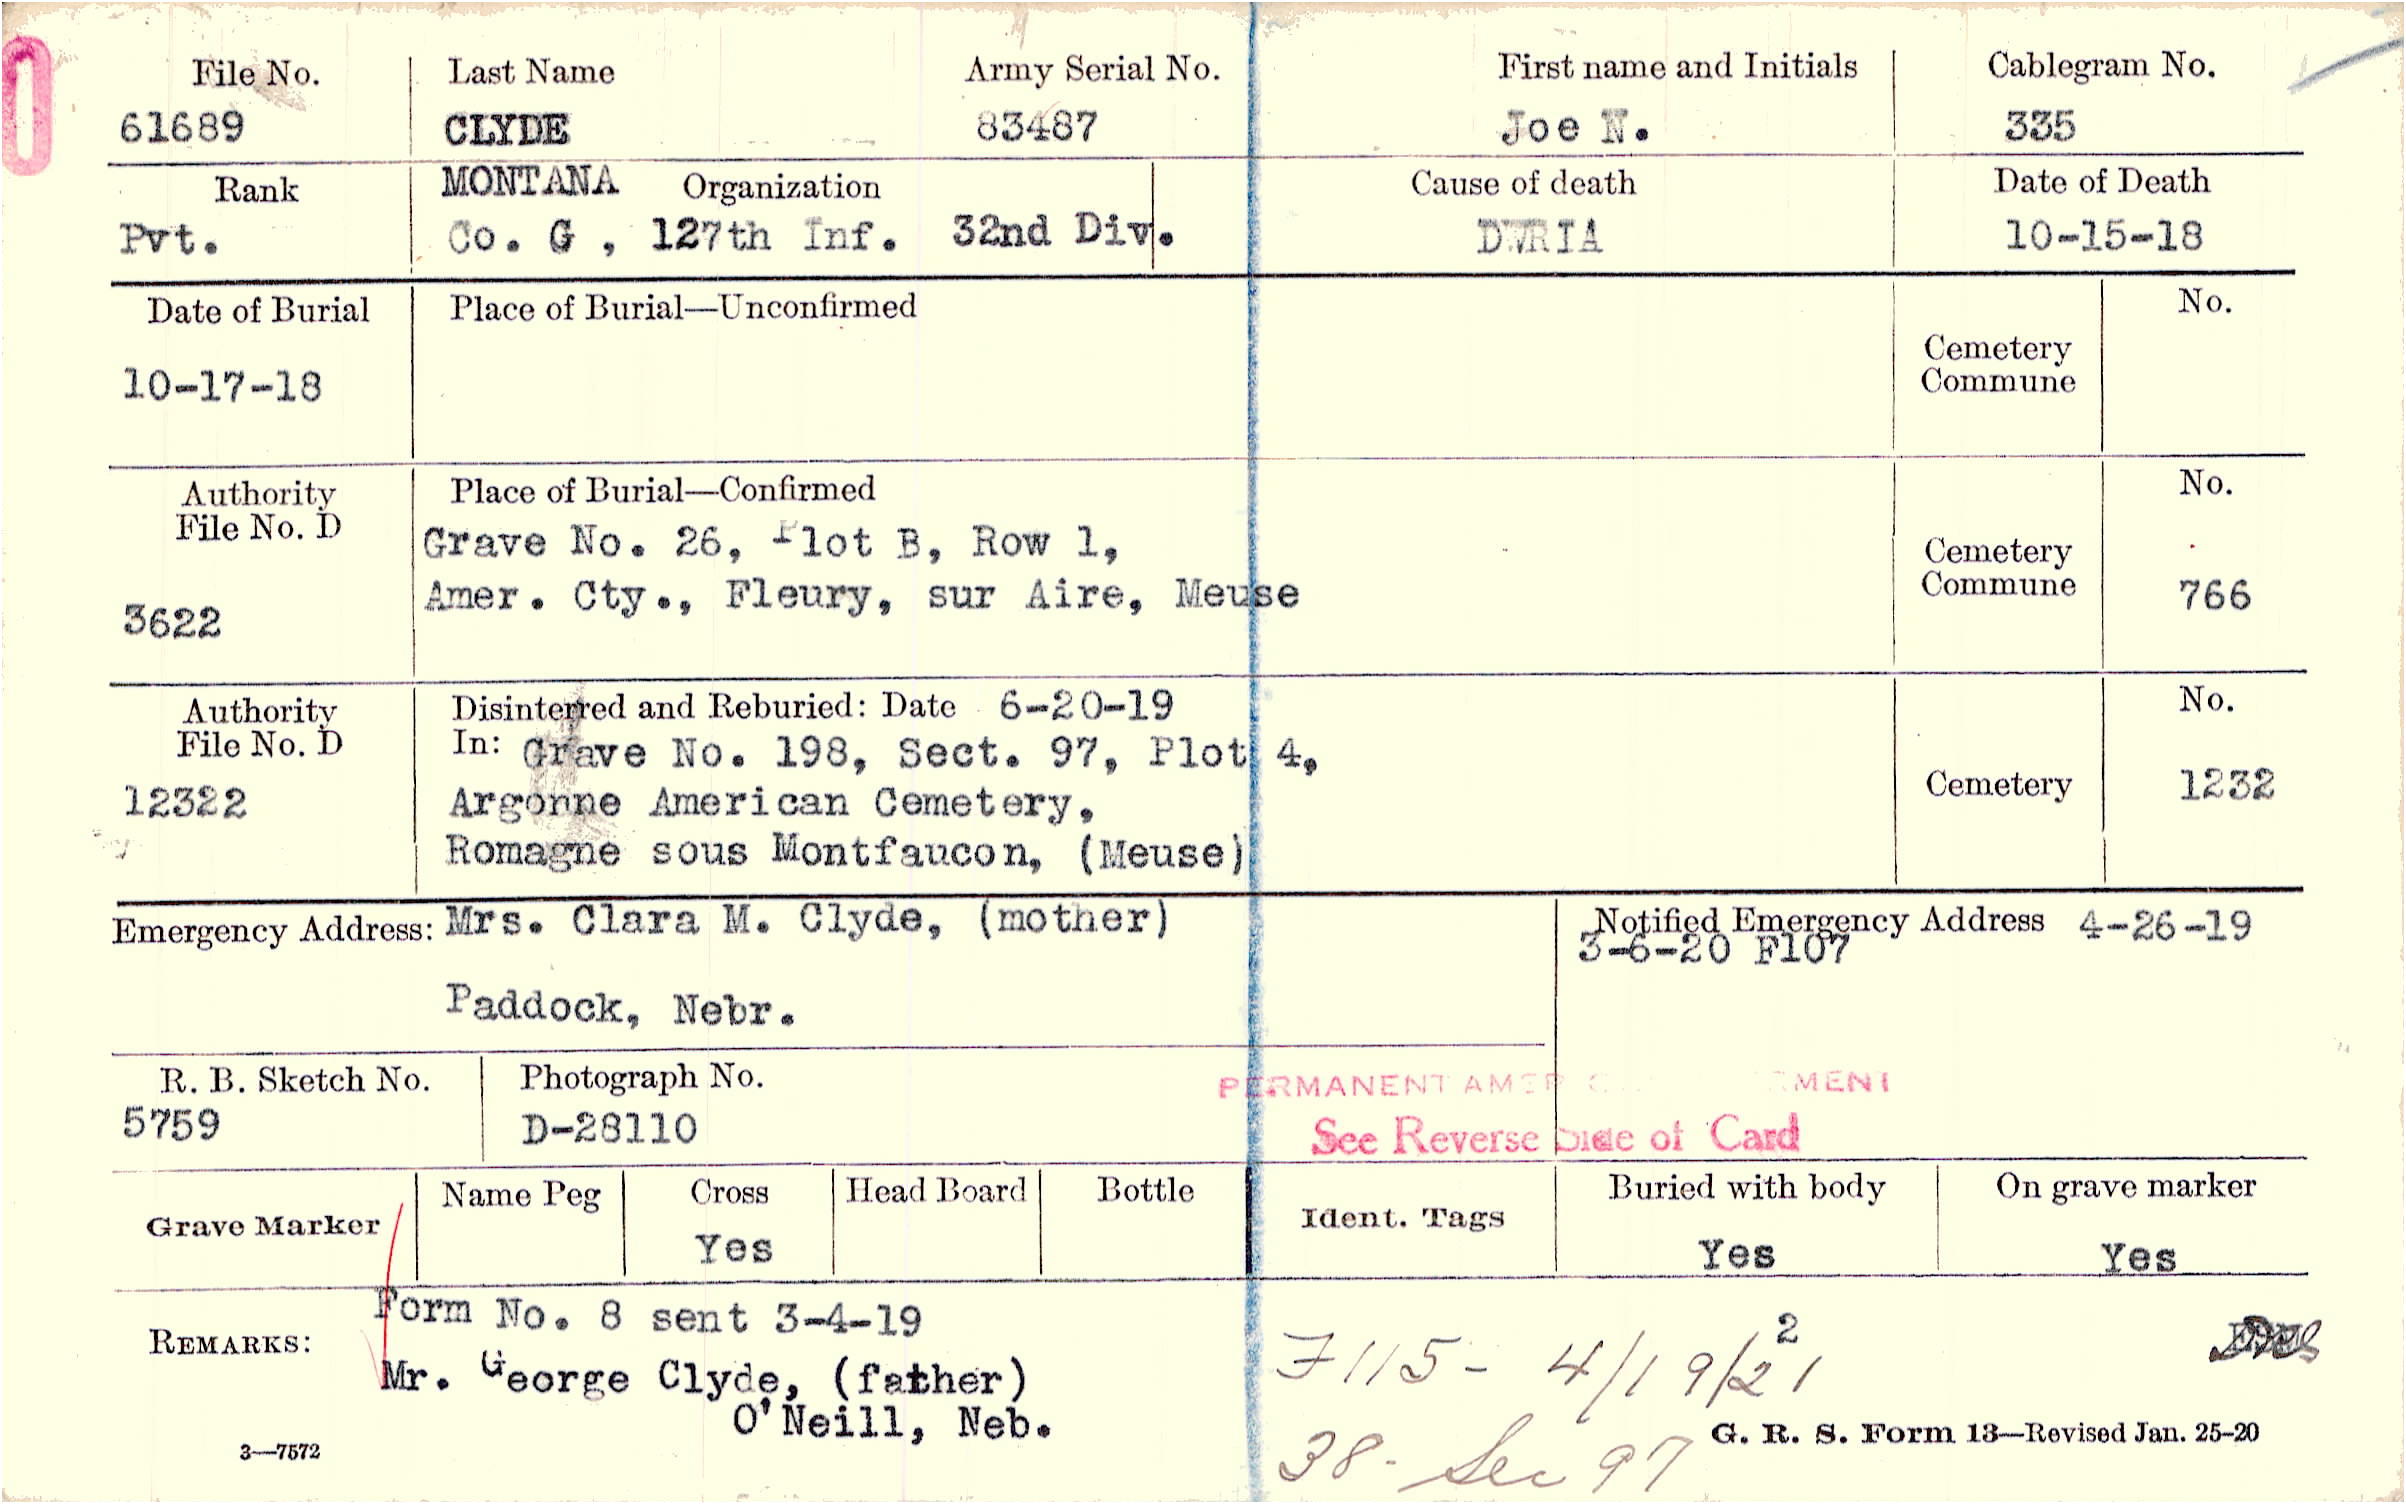 File No. Last Name Army Serial No. First name and Initials Cablegram No.
61689 CLYDE 83487 Joe N. 335
Rank MONTANA Organization Cause of death Date of Death
Pvt. Co. G , 127th Inf. 32nd Div. DWRIA 10-15-18
Date of Burial Place of Burial—Unconfirmed No.
Cemetery
Commune
10-17-18
Authority Place of Burial—Confirmed No.
File No. D
Grave No. 26, Plot B, Row 1,
Cemetery
Commune
Amer. Cty., Fleury, sur Aire, Meuse 766
3622
Authority Disinterred and Reburied: Date 6-20-19 No.
File No. D In: Grave No. 198, Sect. 97, Plot 4,
12322 Argonne American Cemetery, Cemetery 1232
Romagne sous Montfaucon, (Meuse)
Emergency Address: Mrs. Clara M. Clyde, (mother) Notified Emergency Address 4-26-19
3-6-20 F107
Paddock, Nebr.
R. B. Sketch No. Photograph No. PERMANENT
5759 D-28110 See Reverse Side of Card
Grave Marker Name Peg Cross Head Board Bottle Ident. Tags Buried with body On grave marker
Yes Yes Yes
Form No. 8 sent 3-4-19
REMARKS:
Mr. George Clyde, (father) F115- 4/19/21 2
O'Neill, Neb.
3—7572 38- Sec 97 G. R. S. Form 13—Revised Jan. 25-20